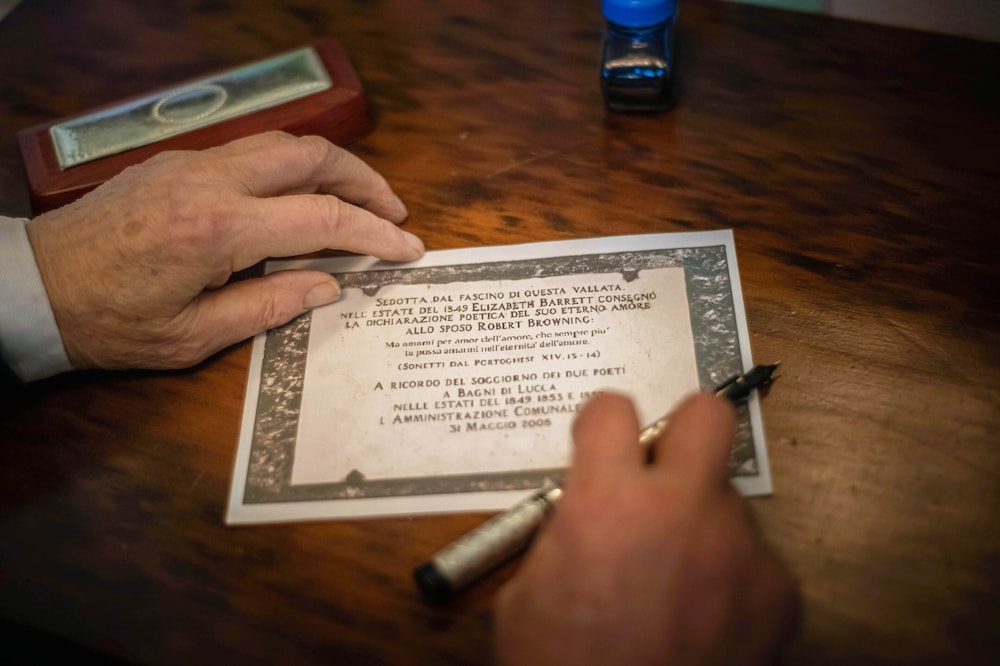 SEDOTTA DAL FASCINO DI QUESTA VALLATA,
NELL'ESTATE DEL 1849 ELIZABETH BARRETT CONSEGNÒ
LA DICHIARAZIONE POETICA DEL SUO ETERNO AMORE
ALLO SPOSO ROBERT BROWNING:
Ma amami per amor dell'amore, che sempre piu'
tu possa amarmi nell'eternita' dell'amore.
(SONETTI DAL PORTOGHESE XIV, 13 - 14)
A RICORDO DEL SOGGIORNO DEI DUE POETI
A BAGNI DI LUCCA
NELLE ESTATI DEL 1849 1853 E
L'AMMINISTRAZIONE COMUNALE
31 MAGGIO 2008